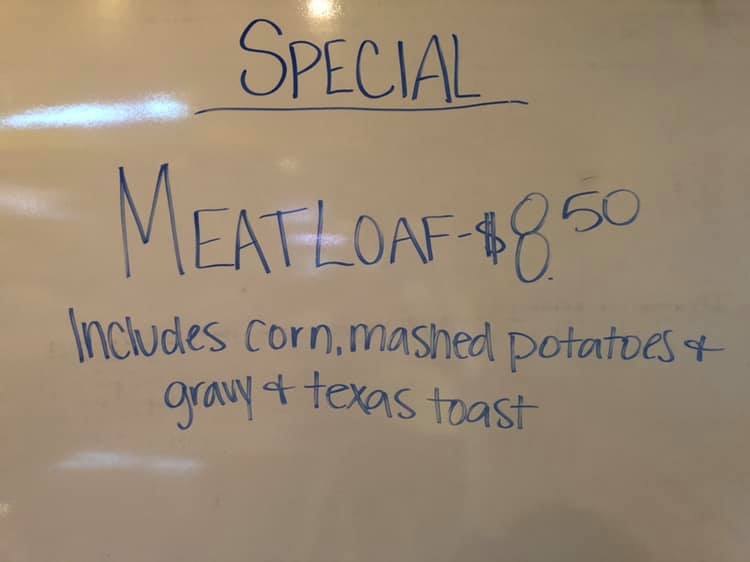 SPECIAL
MEATLOAF-$8.50
Includes corn, mashed potatoes &
gravy & texas toast